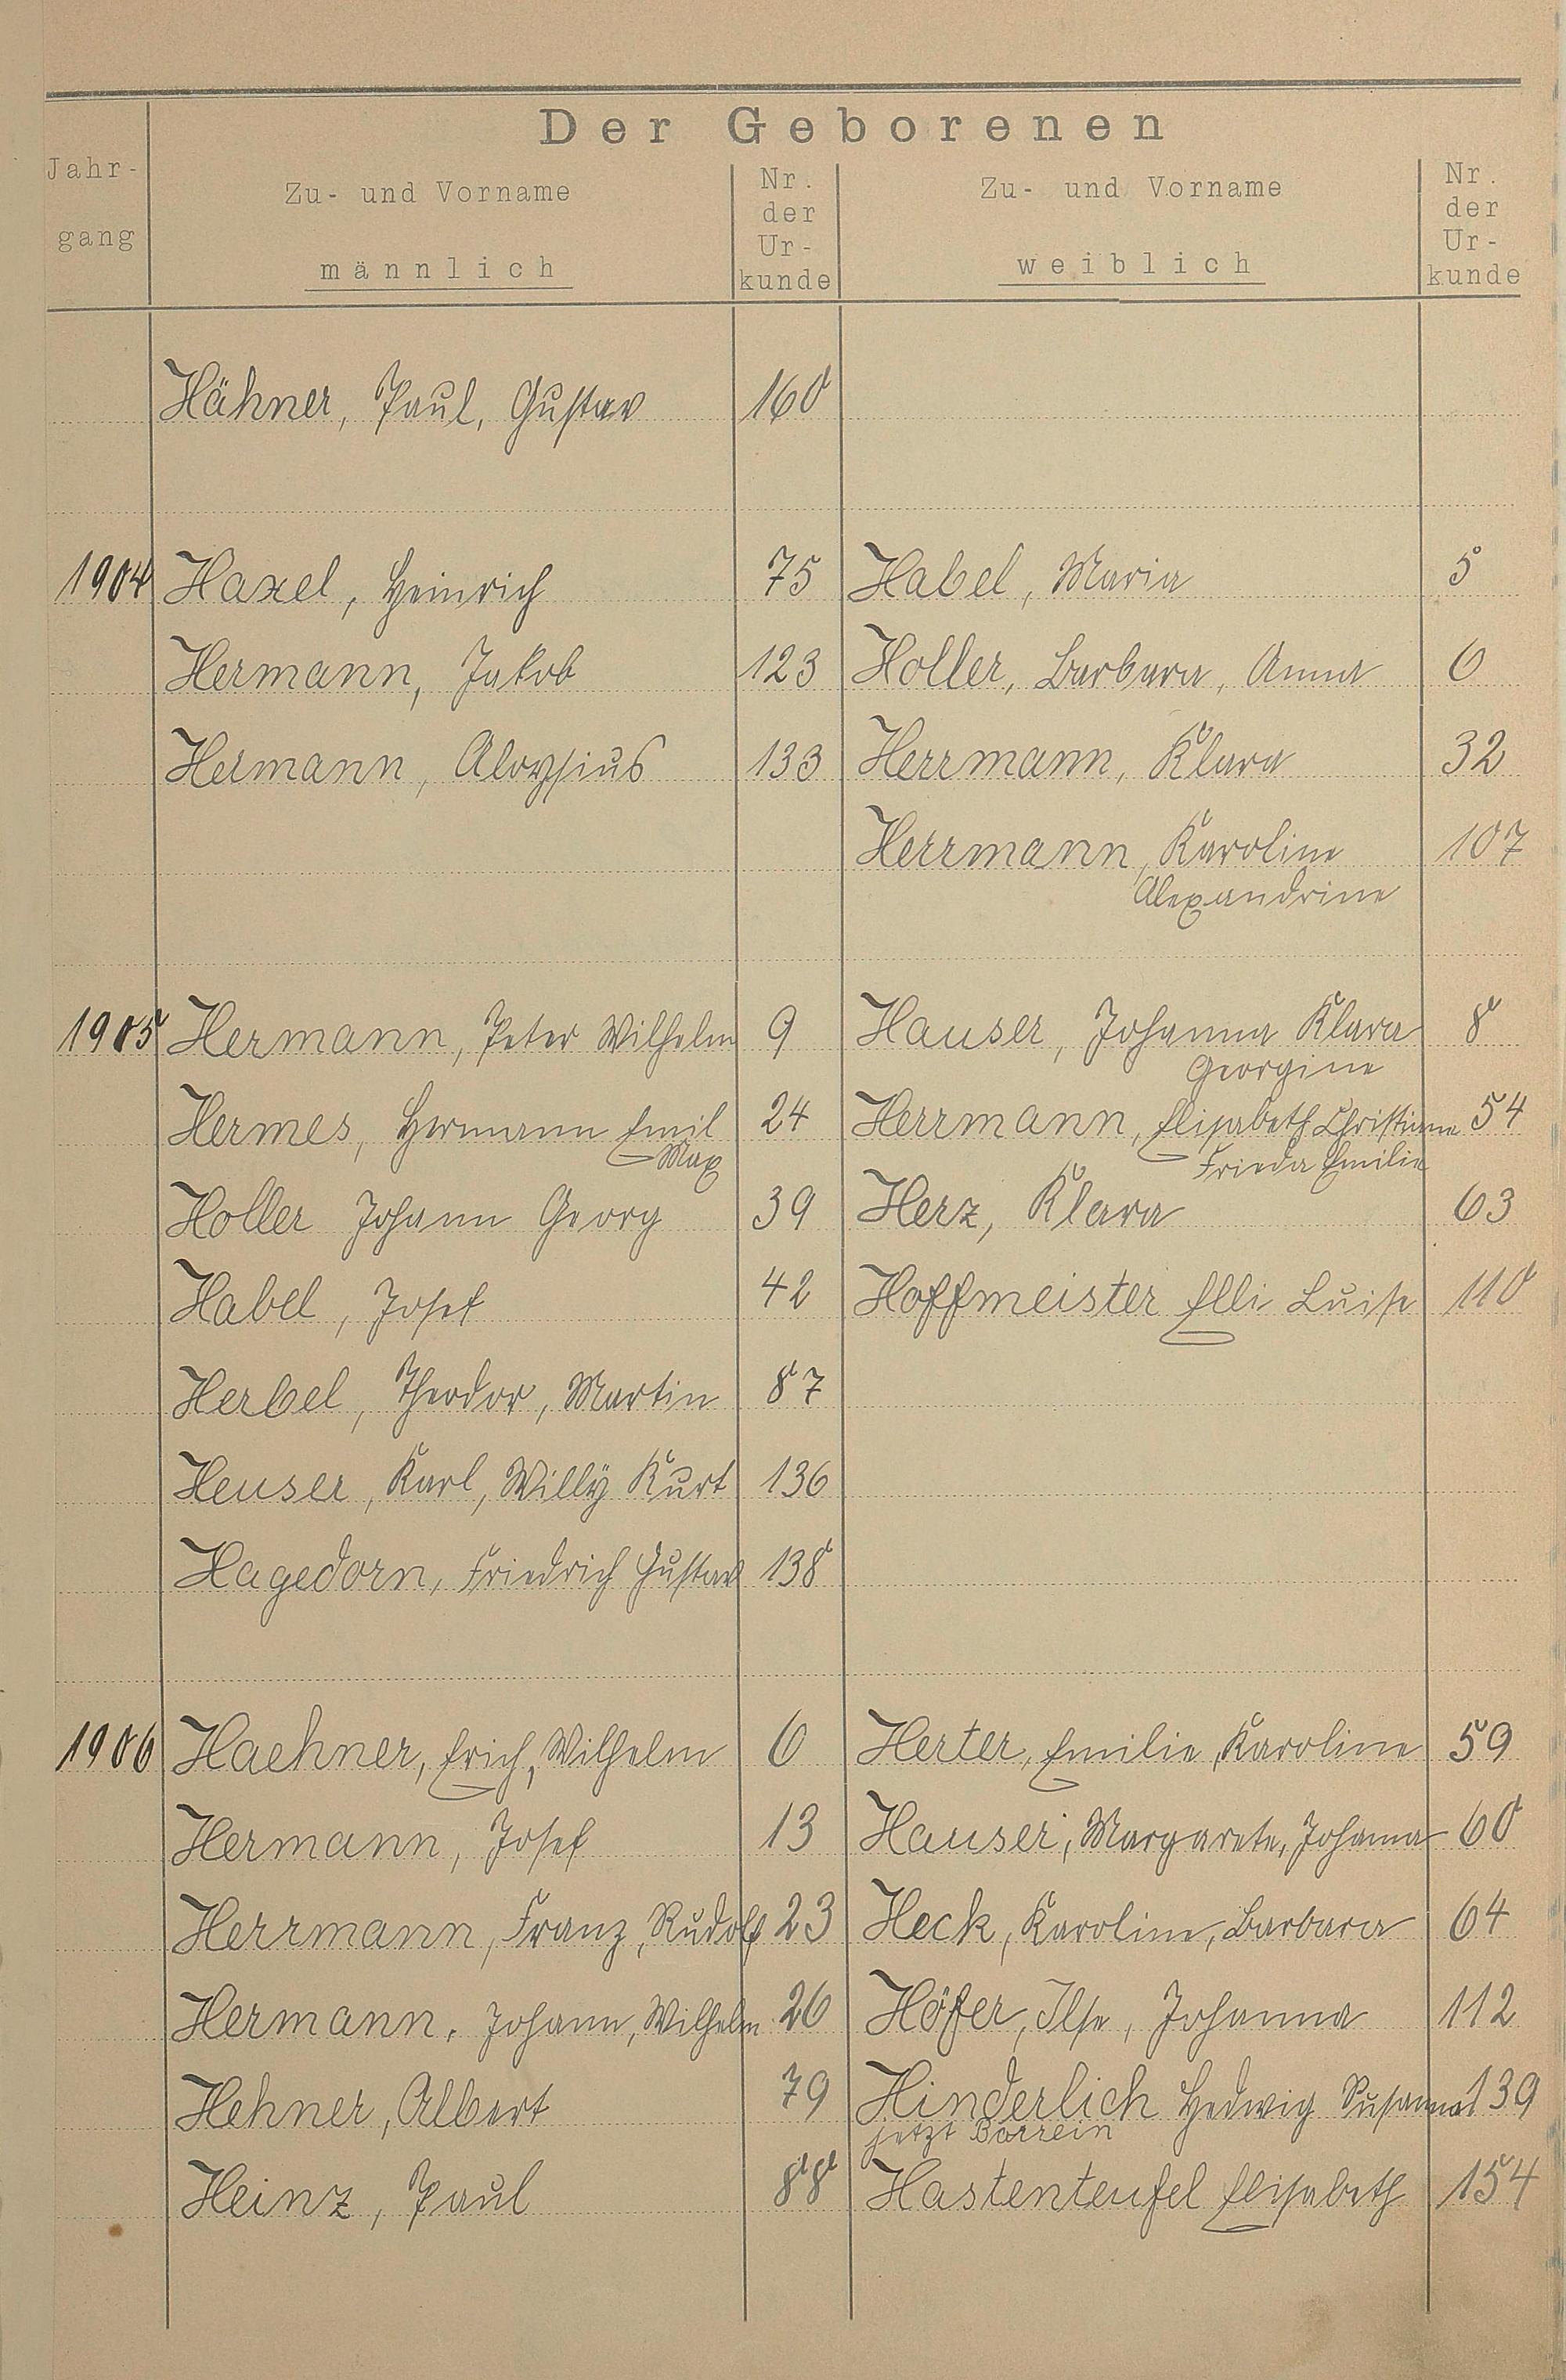 Der Geborenen
Jahr-
gang
Zu- und Vorname
männlich
Nr.
der
Ur-
kunde
Zu- und Vorname
weiblich
Nr.
der
Ur-
kunde
Hähner, Paul, Gustav 160
1904 Haxel, Heinrich 75 Habel, Maria 5
Hermann, Jakob 123 Holler, Barbara, Anna 6
Hermann, Aloysius 133 Herrmann, Klara 32
Herrmann, Karoline 107
Alexandrine
1905 Hermann, Peter Wilhelm 9 Hauser, Johanna Klara 8
Georgine
Hermes, Hermann Emil 24 Herrmann, Elisabeth Christiane 54
Max Frieda Emilie
Holler Johann Georg 39 Herz, Klara 63
Habel, Josef 42 Hoffmeister Elli Luise 110
Herbel, Theodor, Martin 87
Heuser, Karl, Willÿ Kurt 136
Hagedorn, Friedrich Gustav 138
1906 Haehner, Erich, Wilhelm 6 Herter, Emilie, Karoline 59
Hermann, Josef 13 Hauser, Margarete, Johanna 60
Herrmann, Franz, Rudolf 23 Heck, Karoline, Barbara 64
Hermann, Johann, Wilhelm 26 Höfer, Ilse, Johanna 112
Hehner, Albert 79 Hinderlich Hedwig Susanna 139
jetzt Borrein
Heinz, Paul 88 Hastenteufel Elisabeth 154